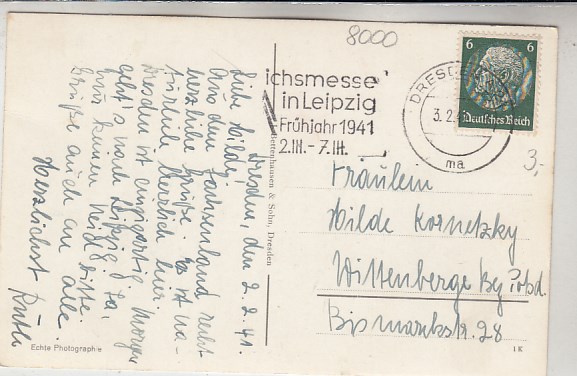 8000
6 6
Deutsches Reich
DRESDEN
3.2.4
ma
ichsmesse
in Leipzig
Frühjahr 1941
2.III. - 7.III.
3,-
Dresden, den 2.2.41.
Liebe Wilde,
Aus dem Sachsenland recht
herzliche Grüße. Es ist na-
türlich herrlich hier.
Dresden ist einzigartig. Morgen
geht's nach Leipzig. Ja,
nur keinen Neid bitte.
Grüße auch an alle.
Herzlichst
Ruth
Fräulein
Wilde Kornetzky
Wittenberge Bz. Potsd.
Bismarckstr. 28
Bettenhausen & Sohn, Dresden
Echte Photographie
1 K